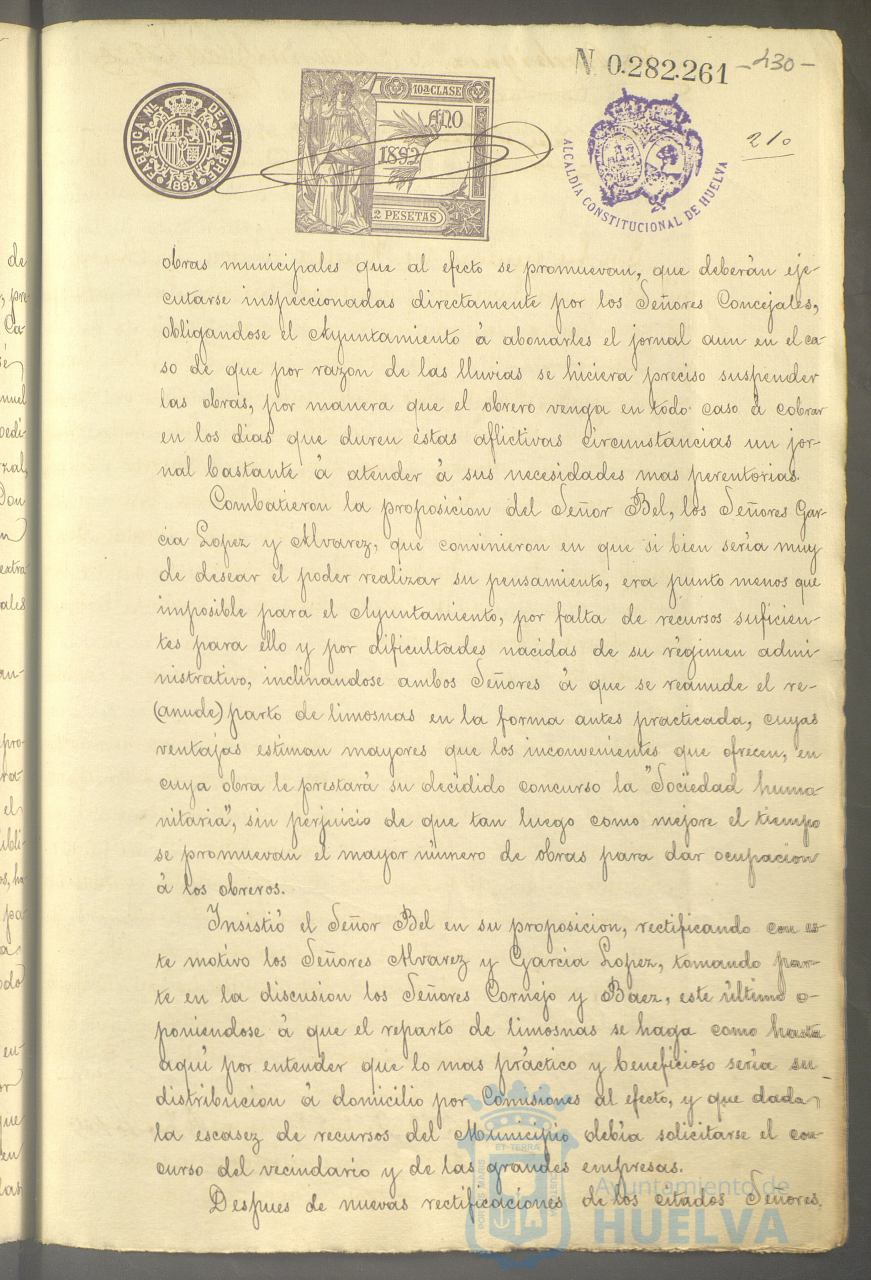 N 0.282.261 -430-
FABRICA NL. DEL TIMBRE
1892
10ª CLASE
AÑO
1892
2 PESETAS
ALCALDÍA CONSTITUCIONAL DE HUELVA
210
obras municipales que al efecto se promuevan, que deberán eje-
cutarse inspeccionadas directamente por los Señores Concejales,
obligandose el Ayuntamiento á abonarles el jornal aun en el ca-
so de que por razon de las lluvias se hiciera preciso suspender
las obras, por manera que el obrero venga en todo caso á cobrar
en los dias que duren éstas aflictivas circunstancias un jor-
nal bastante á atender á sus necesidades mas perentorias.
Combatieron la proposicion del Señor Bel, los Señores Gar-
cia Lopez y Alvarez, que convinieron en que si bien sería muy
de desear el poder realizar su pensamiento, era punto menos que
imposible para el Ayuntamiento, por falta de recursos suficien-
tes para ello y por dificultades nacidas de su régimen admi-
nistrativo, inclinandose ambos Señores á que se reanude el re-
(anude) parto de limosnas en la forma antes practicada, cuyas
ventajas estiman mayores que los inconvenientes que ofrecen, en
cuya obra le prestará su decidido concurso la "Sociedad huma-
nitaria", sin perjuicio de que tan luego como mejore el tiempo
se promuevan el mayor número de obras para dar ocupacion
á los obreros.
Insistió el Señor Bel en su proposicion, rectificando con es-
te motivo los Señores Alvarez y García Lopez, tomando par-
te en la discusion los Señores Cornejo y Baez, este último o-
poniendose á que el reparto de limosnas se haga como hasta
aquí por entender que lo mas práctico y beneficioso sería su
distribucion á domicilio por Comisiones al efecto, y que dada
la escasez de recursos del Municipio debia solicitarse el con-
curso del vecindario y de las grandes empresas.
Despues de nuevas rectificaciones de los citados Señores,
PORTUS MARIS ET TERRA CUSTODIA
Ayuntamiento de
HUELVA